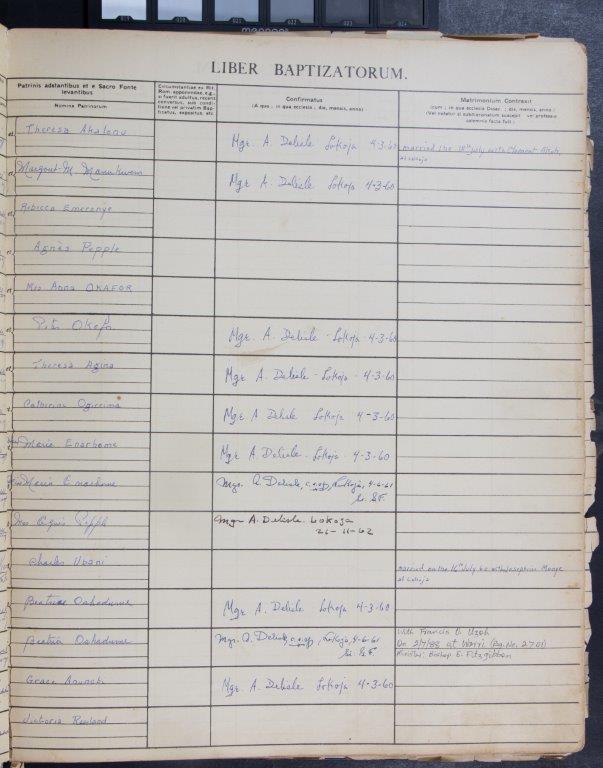 LIBER BAPTIZATORUM.
Patrinis adstantibus et e Sacro Fonte
levantibus
Nomina Patrinorum
Circumstantiae ex Rit.
Rom. apponendae, e.g.,
si fuerit adultus, recens
conversus, sub condi-
tione vel privatim Bap-
tizatus, expositus, etc.
Confirmatus
(A quo ; in qua ecclesia ; die, mensis, anno)
Matrimonium Contraxit
(cum ; in qua ecclesia Dioec. ; die, mensis, anno.)
(Vel notetur si subdiaconatum suscepit vel professio
solemnis facta fuit)
Theresa Akaleau Mgr. A. Delisle Lokoja 4-3-60 married the 16th July with Clement
at Lokoja
Margaret-M. Mgr. A. Delisle Lokoja 4-3-60
Rebecca Emerenye
Agnès Pepple
Mrs Anna OKAFOR
Okafa Mgr. A. Delisle - Lokoja - 4-3-60
Theresa Agina Mgr. A. Delisle - Lokoja - 4-3-60
Catherine Mgr A Delisle Lokoja 4-3-60
Marie Enarhome Mgr. A. Delisle - Lokoja 4-3-60
Maria Mgr. A. Delisle, c.s.sp, Lokoja, 4-6-61
Mrs Pepple Mgr A. Delisle. Lokoja
21-11-62
Charles Ubani married on the 16th July with Josephine
at Lokoja
Beatrice Oshodume Mgr. A. Delisle Lokoja 4-3-60
Beatrice Oshodume Mgr. A. Delisle, c.s.sp, Lokoja, 4-6-61 With Francis U. Uzoh
On 2/7/88 at Warri (Pg. No. 2701)
Minister: Bishop E. Fitzgibbon
Grace Mgr. A. Delisle Lokoja 4-3-60
Victoria Rowland